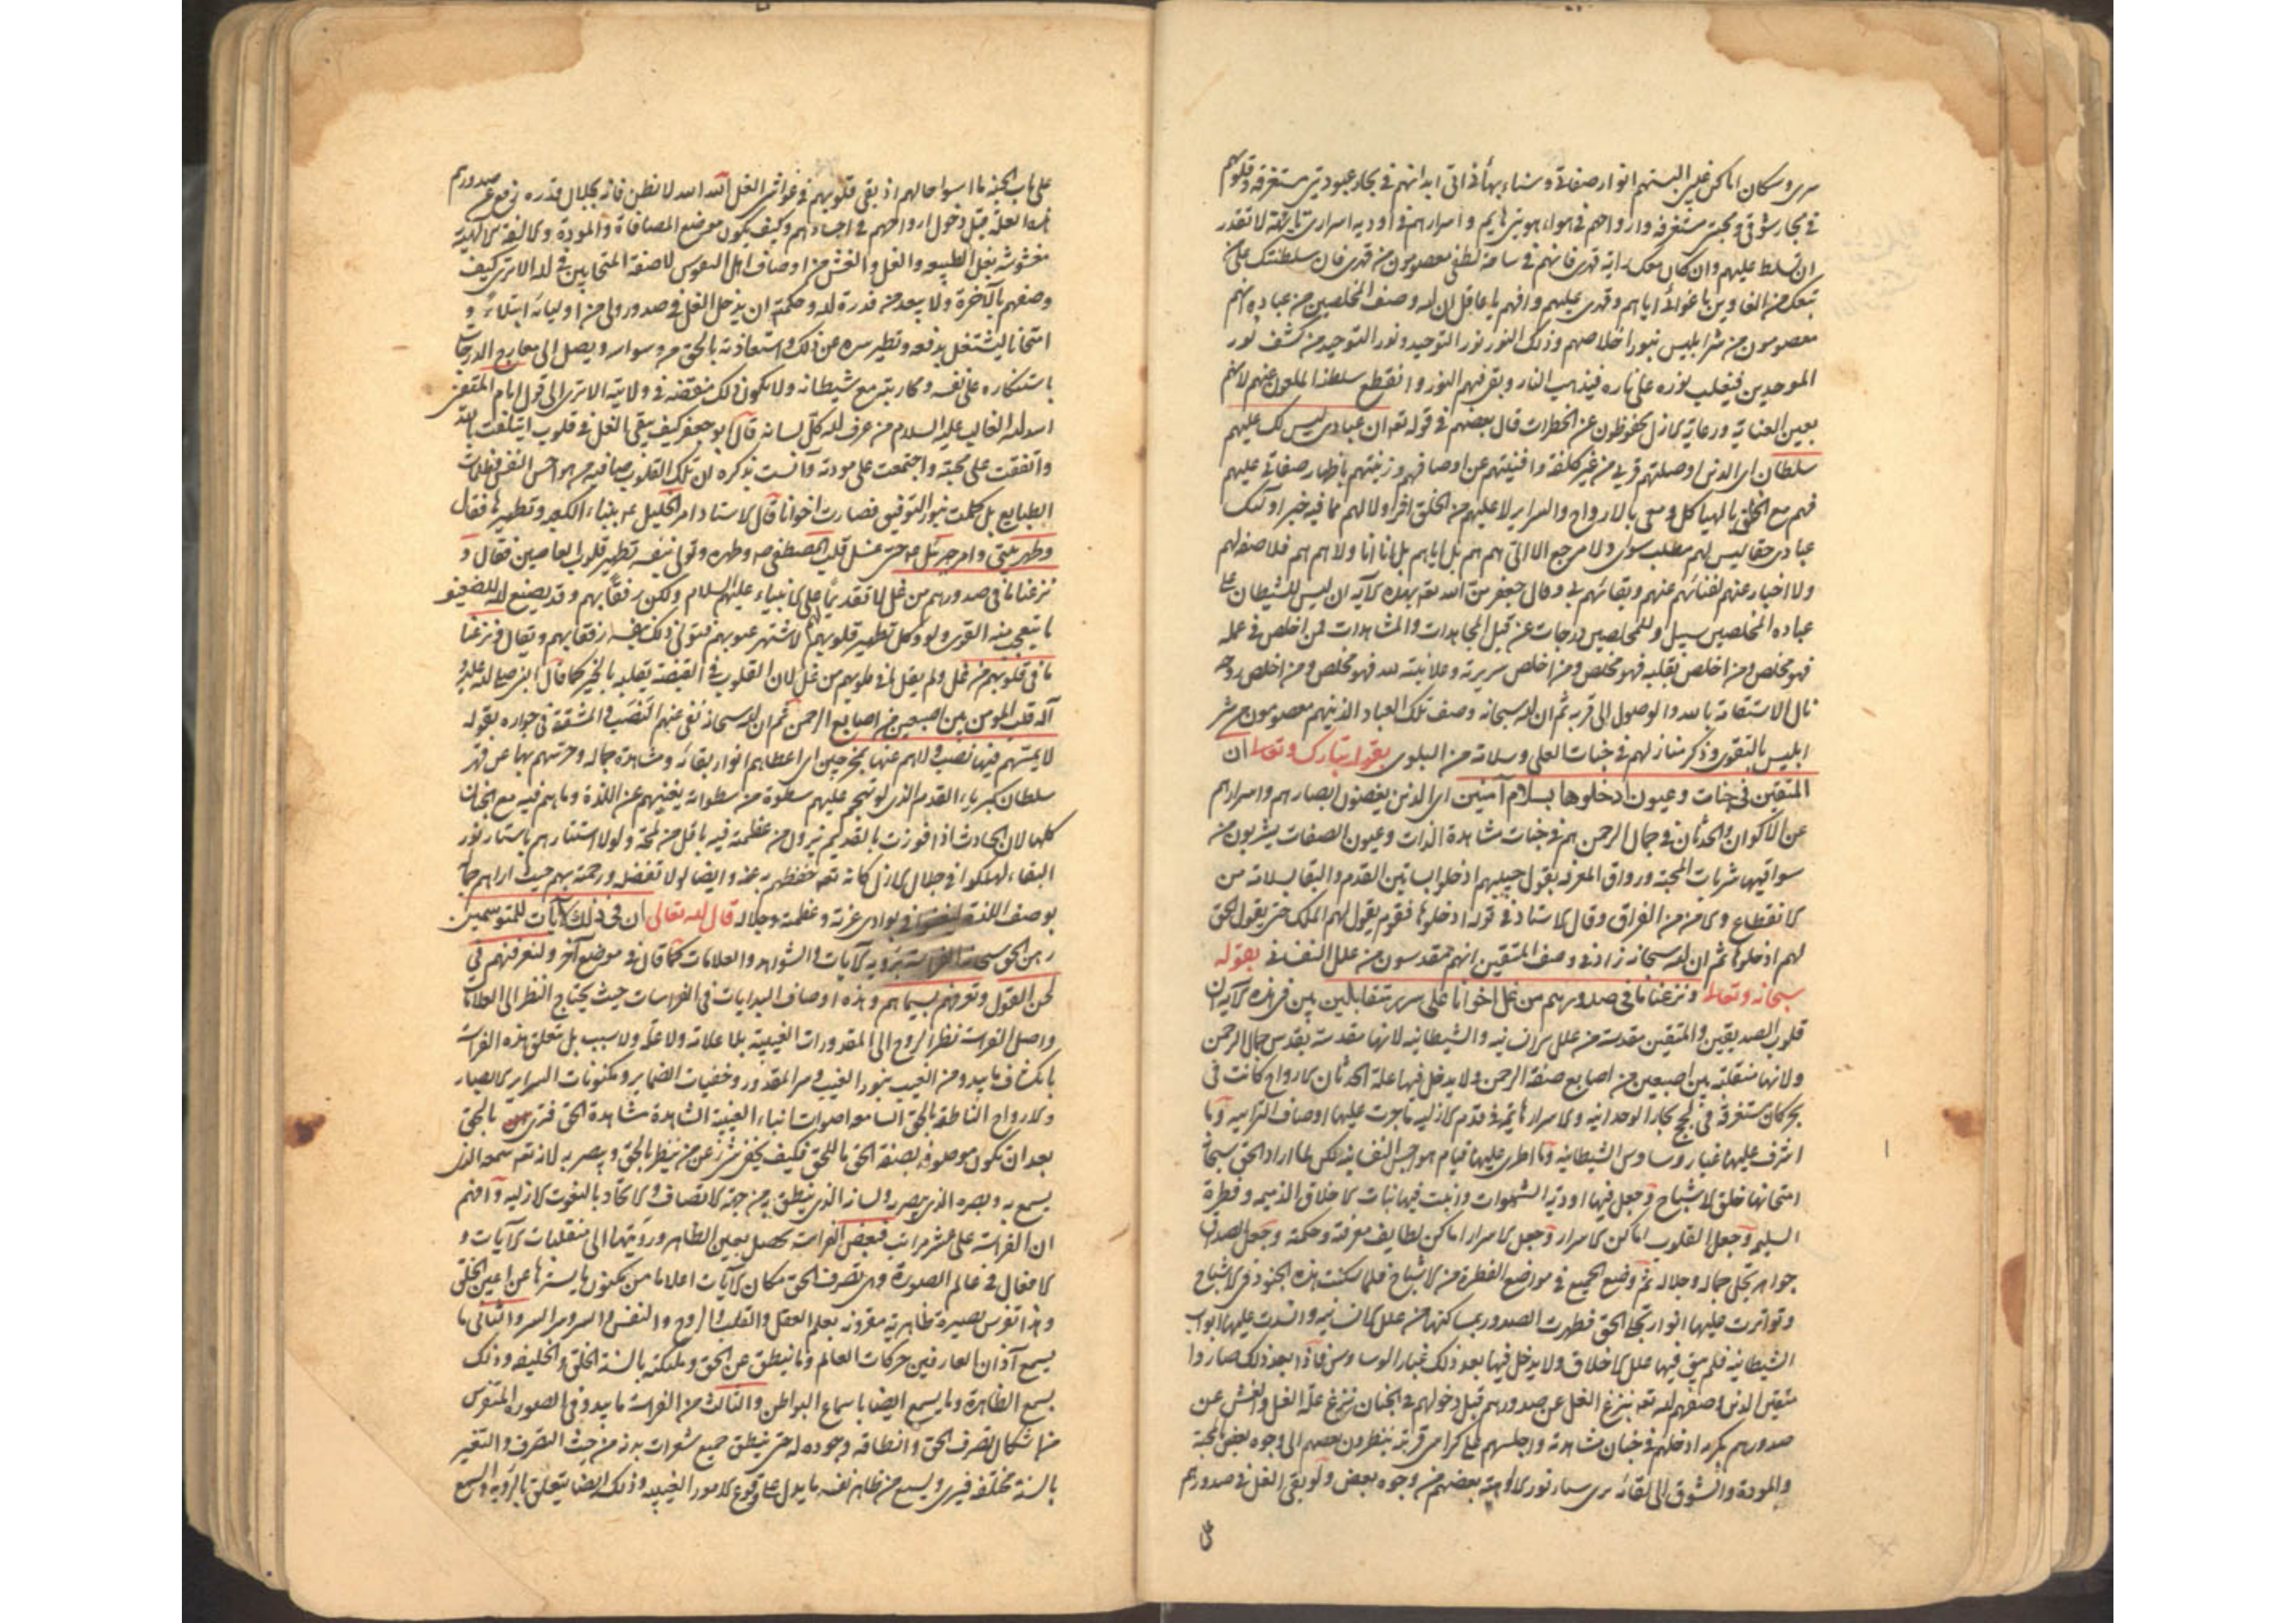 سری وسكان اماكن غیبی البستهم انوار صفاتی وسناء بهائی فی ابدانهم فی بحار عبودیتی مستغرقة وقلوبهم
فی بحار شوقی ومحبتی مستغرقة وارواحهم فی هواء هویتی هایم واسرارهم فی اودیة اسراری لا تقدر
ان تسلط علیهم وان كان معك قهری فانهم فی ساحة لطفی معصومون من قهری فان سلطنتك علی من
تبعك من الغاوین باغوائك ایاهم وقهری علیهم وافهم یا عاقل ان الله وصف المخلصین من عباده انهم
معصومون من شر ابلیس بنور اخلاصهم وذلك النور نور التوحید ونور التوحید من كشف نور
الموحدین فیغلب نوره علی ناره فیذهب النار وبقی فیهم النور وانقطع سلطنة الملعون عنهم لانهم
بعین العنایة ورعایة الازل محفوظون عن الخطرات قال بعضهم فی قوله تعه ان عبادی لیس لك علیهم
سلطان ای الذین اوصلتهم قربی من غیر كلفة وافنیتهم عن اوصافهم وزینتهم باظهار صفاتی علیهم
فهم مع الخلق بالهیاكل ومعی بالارواح والسرایر لا علیهم من الخلق اثر ولا لهم مما فیه خبر اولئك
عبادی حقا لیس لهم مطلب سوای ولا مرجع الا الی هم هم بل ایاهم بل انا انا ولا هم هم فلا صفة لهم
ولا اخبار عنهم لفنائهم عنهم وبقائهم بی وقال جعفر من الله تعه بهذه الآیة ان لیس للشیطان علی
عباده المخلصین سبیل وللمخلصین درجات عن قبل المجاهدات والمشاهدات فمن اخلص فی عمله
فهو مخلص ومن اخلص بقلبه فهو مخلص ومن اخلص سریرته وعلانیته لله فهو مخلص ومن اخلص روحه
نال الاستقامة بالله والوصول الی قربه ثم ان الله سبحانه وصف تلك العباد الذین هم معصومون من شر
ابلیس بالتقوی وذكر منازلهم فی جنات العلی وسلامة من البلوی بقوله تبارك وتعالی ان
المتقین فی جنات وعیون ادخلوها بسلام آمنین ای الذین یغضون ابصارهم واسرارهم
عن الاكوان والحدثان فی جمال الرحمن هم فی جنات مشاهدة الذات وعیون الصفات یشربون من
سواقیها شربات المحبة ورواق المعرفة یقول حبیبهم ادخلوا بساتین القدم والبقا بسلامة من
الانقطاع والامن من الفراق وقال الاستاد فی قوله ادخلوها فقوم یقول لهم الملك حتی یقول الحق
لهم ادخلوها ثم ان الله سبحانه زاد فی وصف المتقین انهم مقدسون من علل النفسانی بقوله
سبحانه وتعالی ونزعنا ما فی صدورهم من غل اخوانا علی سرر متقابلین بین فی هذه الآیة ان
قلوب الصدیقین والمتقین مقدسة من علل الانسانیة والشیطانیة لانها مقدسة بقدس جمال الرحمن
ولانها متقلبة بین اصبعین من اصابع صفة الرحمن ولا یدخل فیها علة الحدثان الارواح كانت فی
مستغرقة فی لجج بحار الوحدانیة والاسرار هایمة فی قدم الازلیة ما جرت علیها اوصاف الترابیة وما
اشرف علیها غبار وساوس الشیطانیة وما اطری علیها قیام هواجس النفسانیة لكن لما اراد الحق سبحانه
امتحانها خلق الاشباح وجعل فیها اودیة الشهوات وانبت فیها نبات الاخلاق الذمیمة وفطرة
السلیمة وجعل القلوب اماكن الاسرار وجعل الاسرار اماكن لطایف معرفة وحكمة وجعل الصدف
جواهر تجلی جماله وجلاله ثم وضع الجمیع فی مواضع الفطرة من الاشباح فلما سكنت هذه الجنود فی الاشباح
وتواترت علیها انوار تجلی الحق فطهرت الصدور بمساكنها من علل الانسانیة وانسدت علیها ابواب
الشیطانیة فلم یبق فیها علل الاخلاق ولا یدخل فیها بعد ذلك غبار الوساوس فاذا بعد ذلك صاروا
متقین الذین وصفهم الله تعه بنزع الغل عن صدورهم قبل دخولهم فی الجنان بنزع علة الغل والغش عن
صدورهم بكرمه ادخلهم فی جنان مشاهدته واجلسهم علی كراسی قربته ینظرون بعضهم الی وجوه بعض بالمحبة
والمودة والشوق الی لقائه یری سناء نور الالوهیة بعضهم من وجوه بعض ولو بقی الغل فی صدورهم
علی
علی باب الجنة ما اسوا حالهم اذ یبقی قلوبهم فی غواشی الغل الله الله لا تظن فانه بجلال قدره نزع عن صدورهم
هذه العلة قبل دخول ارواحهم فی اجسادهم وكیف یكون موضع المصافاة والمودة والالفة الالهیة
مغشوشة بغل الطبیعة والغل والغش من اوصاف اهل النفوس لا صفة المتحابین فی الله الا تری كیف
وصفهم بالآخرة ولا یبعد من قدرة الله وحكمته ان یدخل الغل فی صدور ولی من اولیائه ابتلاء و
امتحانا لیشتغل بدفعه وتطهیر سره عن ذلك واستعاذته بالحق من وسواس ویصل الی معارج الدرجات
باستنكاره علی نفسه ومحاربته مع شیطانه ولا یكون ذلك منقصة فی ولایته الا تری الی قول امام المتقین
اسد الله الغالب علیه السلام من عرف الله كل لسانه قال ابو جعفر كیف یبقی الغل فی قلوب ایتلفت بالله
واتفقت علی محبته واجتمعت علی مودته وآنست بذكره ان تلك القلوب صافیة من هواجس النفس وظلمات
الطبایع بل كحلت بنور التوفیق فصارت اخوانا قال الاستاد امر الخلیل عم ببناء الكعبة وتطهیرها فقال
وطهر بیتی وامر جبرئیل عم حتی غسل قلب المصطفی صم وطهره وتولی بنفسه تطهیر قلوب العاصین فقال و
نزعنا ما فی صدورهم من غل لا تقدیما علی الانبیاء علیهم السلام ولكن رفقا بهم وقد یصنع الله للضعیف
ما یتعجب منه القوی ولو وكل تطهیر قلوبهم لاشتهر عیوبهم فتولی ذلك بنفسه رفقا بهم ویقال ونزعنا
ما فی قلوبهم من غل ولم یقل ما فی قلوبهم من غل لان القلوب فی القبضة یقلبه بالخیر كما قال النبی صلی الله علیه و
آله قلب المؤمن بین اصبعین من اصابع الرحمن ثم ان الله سبحانه نفی عنهم النصب والمشقة فی جواره بقوله
لا یمسهم فیها نصب وما هم عنها بمخرجین ای اعطاهم انوار بقائه ومشاهدة جماله وحرسهم بها عن قهر
سلطان كبریاء القدم الذی لو تهجم علیهم سطوة من سطواته یغنیهم عن اللذة وما هم فیه مع الجنان
كلها لان الحادث اذا قورنت بالقدیم یزول من عظمته فیه باقل من لمحة ولولا استتارهم باستار نور
البقاء لهلكوا فی جلال الازل كانه تعه حفظهم به عنه وایضا لولا تفضله ورحمته بهم حیث اراهم جماله
بوصف اللذة فی بوادی عزته وعظمته وجلاله قال الله تعالی ان فی ذلك لآیات للمتوسمین
رهن الحق سبحانه الفراسة برؤیة الآیات والشواهد والعلامات كما قال فی موضع آخر ولتعرفنهم فی
لحن القول وتعرفهم بسیماهم وهذه اوصاف البدایات فی الفراسات حیث یحتاج النظر الی العلامات
واصل الفراسة نظر الروح الی المقدورات الغیبیة بلا علامة ولا علة ولا سبب بل تعلق هذه الفراسة
بانكشاف ما یبدو من الغیب بنور الغیب وسر المقدور وخفیات الضمایر ومكنونات السرایر للابصار
والارواح الناطقة بالحق السامعة اصوات انباء الغیبیة الشاهدة مشاهدة الحق فتری بالحق
بعد ان تكون موصوفة بصفة الحق بالحق فكیف یخفی شیء عن من ینظر بالحق ویبصر به لانه تعه سمعه الذی
یسمع به وبصره الذی یبصر به ولسانه الذی ینطق به من جهة الاتصاف والاتحاد بالنعوت الازلیة وافهم
ان الفراسة علی عشر مراتب فبعض الفراسة تحصل بعین الظاهر ورؤیتها الی منقلبات الآیات و
الافعال فی عالم الصورة وهی تصرف الحق مكان الآیات اعلاما من مكنون ما یسترها عن اعین الخلق
وهذا تفرس بصیرة ظاهریة مقرونة بعلم العقل والقلب والروح والنفس والسر وسر السر والثانی ما
یسمع آذان العارفین حركات العالم وما ینطق عن الحق وملیكته بالسنة الخلق والخلیقة وذلك
یسمع الظاهرة وما یسمع ایضا باسماع البواطن والثالث من الفراسة ما یبدو فی الصورة المتفرس
من اشكال تصرف الحق وانطاقه وجوده له حتی ینطق جمیع شعرات بدنه من حیث التصرف والتغیر
بالسنة مختلفة فیری ویسمع من ظاهر نفسه ما یدل علی وقوع الامور الغیبیة وذلك ایضا یتعلق بالرؤیة والسمع